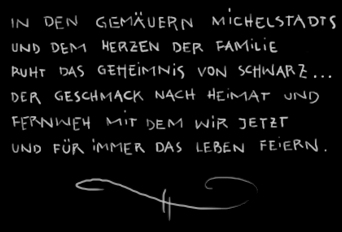 IN DEN GEMÄUERN MICHELSTADTS
UND DEM HERZEN DER FAMILIE
RUHT DAS GEHEIMNIS VON SCHWARZ...
DER GESCHMACK NACH HEIMAT UND
FERNWEH MIT DEM WIR JETZT
UND FÜR IMMER DAS LEBEN FEIERN.